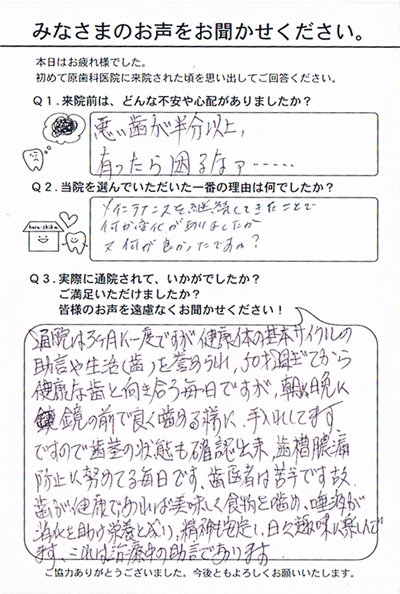 みなさまのお声をお聞かせください。
本日はお疲れ様でした。
初めて原歯科医院に来院された頃を思い出してご回答ください。
Q1.来院前は、どんな不安や心配がありましたか?
悪い歯が半分以上、
有ったら困るなァ……
Q2.当院を選んでいただいた一番の理由は何でしたか?
hara-shika
メインテナンスを継続してきたことで
何か変化がありましたか
又何が良かったですか?
Q3.実際に通院されて、いかがでしたか?
ご満足いただけましたか?
皆様のお声を遠慮なくお聞かせください!
通院は3ヶ月に一度ですが健康体の基本サイクルの
助言や生活(歯)を誉められ、50相ぎてから
健康な歯と向き合う毎日ですが、朝晩に
鏡の前で良く噛める様に、手入れしてます
ですので歯茎の状態も確認出来、歯槽膿漏
防止に努めてる毎日です、歯医者は苦手です故、
歯が健康であれば美味しく食物と噛め、唾液が
消化を助け栄養と成り、精神も安定し、日々趣味に楽しんで
ます、これは治療中の助言であります
ご協力ありがとうございました。今後ともよろしくお願いいたします。